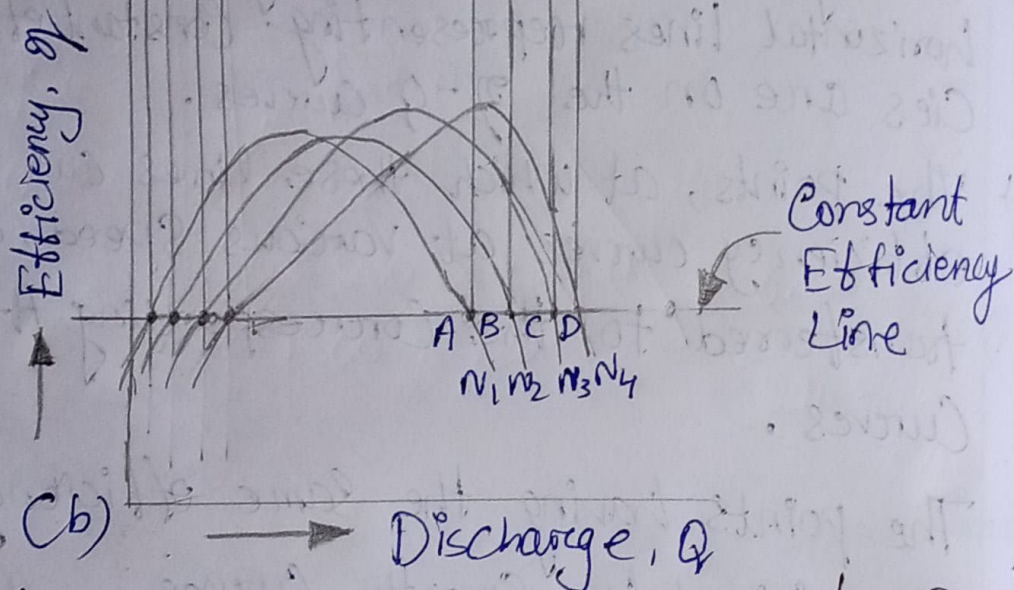 Efficiency, η
Constant
Efficiency
Line
A B C D
N1 N2 N3 N4
(b)
Discharge, Q